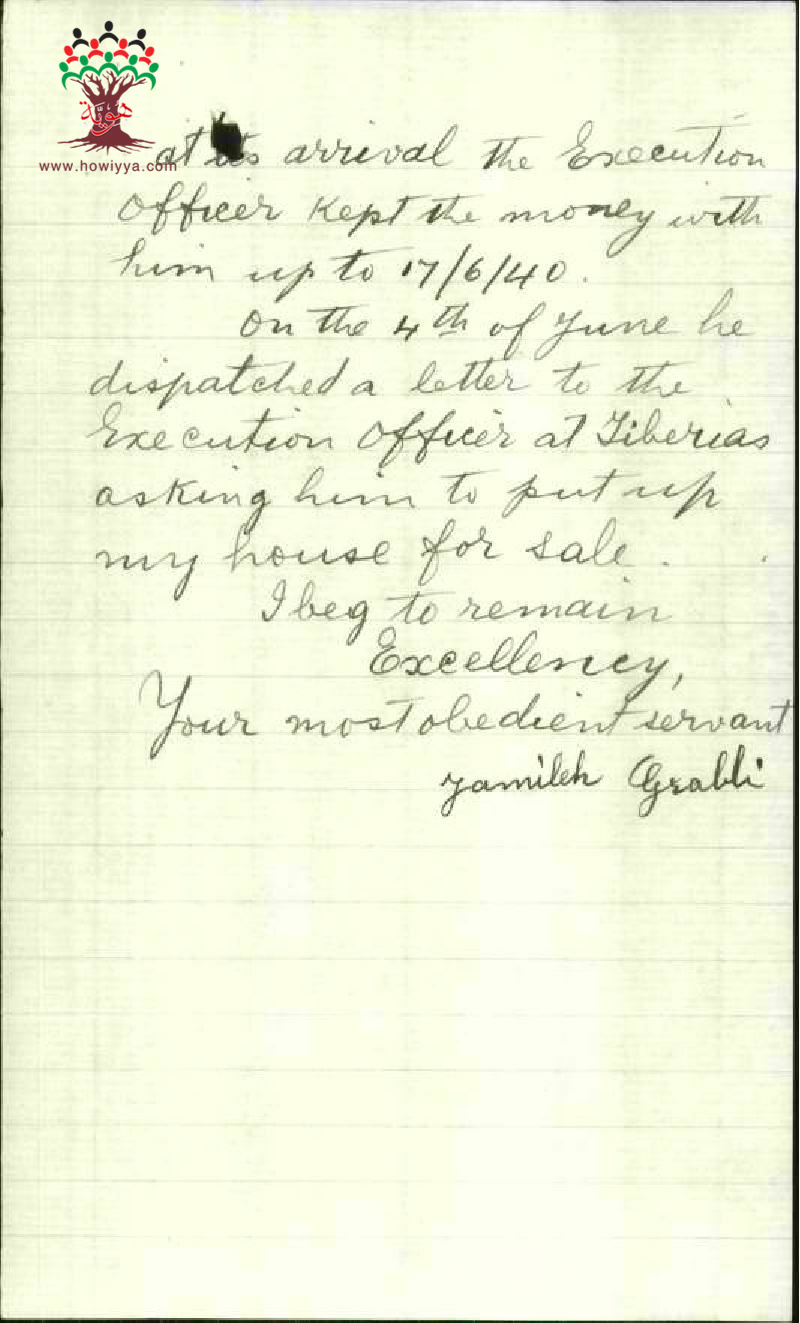 هوية
www.howiyya.com
at its arrival the Execution
Officer Kept the money with
him up to 17/6/40.
On the 4th of June he
dispatched a letter to the
Execution Officer at Tiberias
asking him to put up
my house for sale.
I beg to remain
Excellency,
Your most obedient servant
Jamileh Grabli